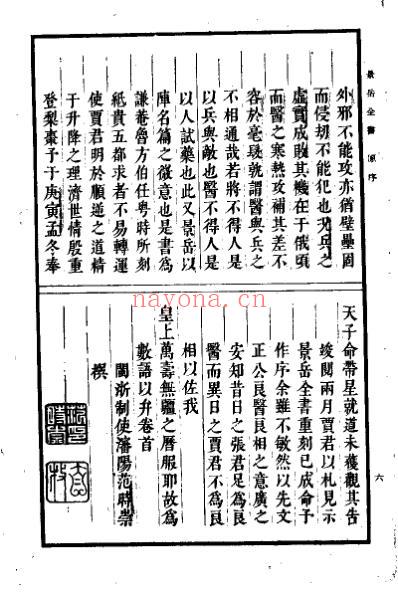 景岳全書 原序
外邪不能攻亦猶壁壘固
而侵刼不能犯也夫兵之
虛實成敗其機在于俄頃
而醫之寒熱攻補其差不
容於毫髮孰謂醫與兵之
不相通哉若將不得人是
以兵與敵也醫不得人是
以人試藥也此又景岳以
陣名篇之微意也是書為
謙菴魯方伯任粤時所刻
紙貴五都求者不易轉運
使賈君明於順逆之道精
于升降之理濟世情殷重
登棃棗予于庚寅孟冬奉
天子命帶星就道未獲觀其告
竣閱兩月賈君以札見示
景岳全書重刻已成命予
作序余雖不敏然以先文
正公良醫良相之意廣之
安知昔日之張君足為良
醫而異日之賈君不為良
相以佐我
皇上萬壽無疆之曆服耶故為
數語以弁卷首
閩浙制使瀋陽范時崇
撰
六
nayona.cn